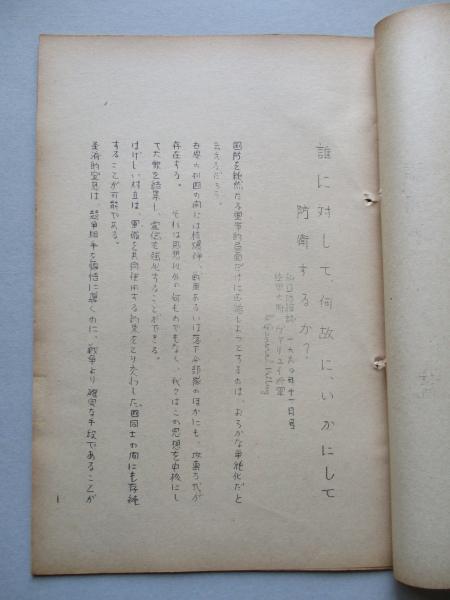 誰に対して、何故に、いかにして
防衛するか?
国防誌 一九六〇年十一月号
陸軍大将・ヴァリュイ将軍
国防を純然たる軍事的局面だけに
しようとするのは、おろかな単純化だと
云えるだろう。
世界の列国の間には核爆弾、戦車あるいは落下傘部隊のほかにも、攻撃力が
存在する。 それは思想以外の何ものでもない。我々はこの思想を中核にし
て大衆を結集し、宣伝を強化することができる。
はげしい対立は、軍備を共同使用する約束をとり交わした、国同士の間にも存続
することが可能である。
経済的窒息は、競争相手を 導くのに、戦争より確実な手段であることが
1